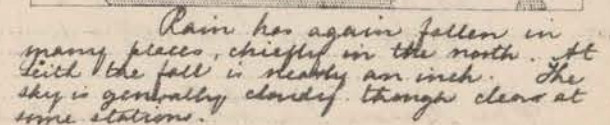 Rain has again fallen in
many places, chiefly in the north. At
Leith the fall is nearly an inch. The
sky is generally cloudy though clear at
some stations.